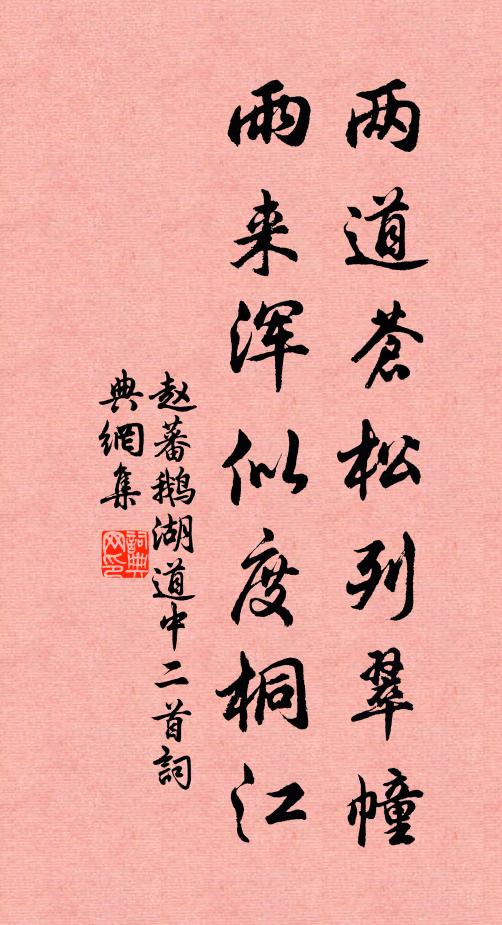 两道苍松列翠幢
雨来浑似度桐江
赵蕃鹅湖道中二首詞
典網集
詞典网印